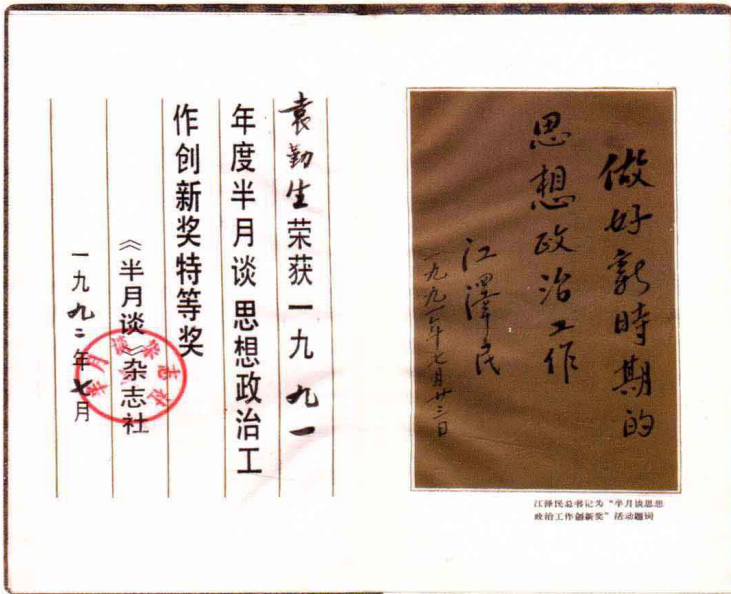 做好新時期的
思想政治工作
江澤民
一九九一年七月廿三日
江泽民总书记为“半月谈思想
政治工作创新奖”活动题词
袁勤生荣获一九九一
年度半月谈思想政治工
作创新奖特等奖
《半月谈》杂志社
一九九二年七月
半月谈杂志社